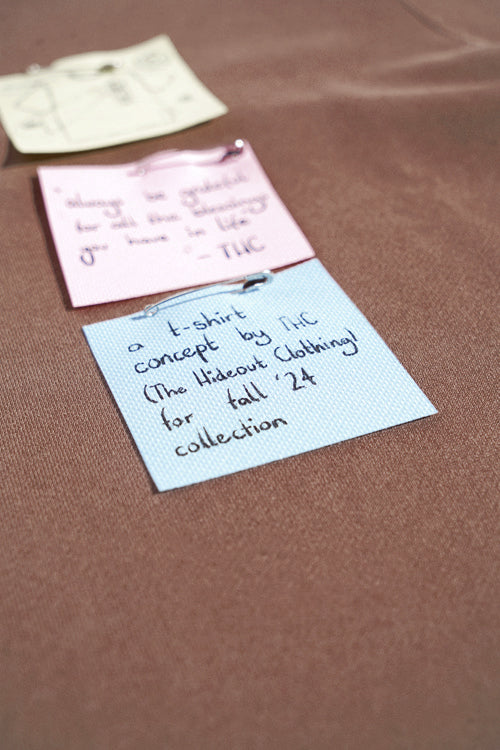 "always be grateful
for all the blessings
you have in life"
- THC
a t-shirt
concept by THC
(The Hideout Clothing)
for fall '24
collection